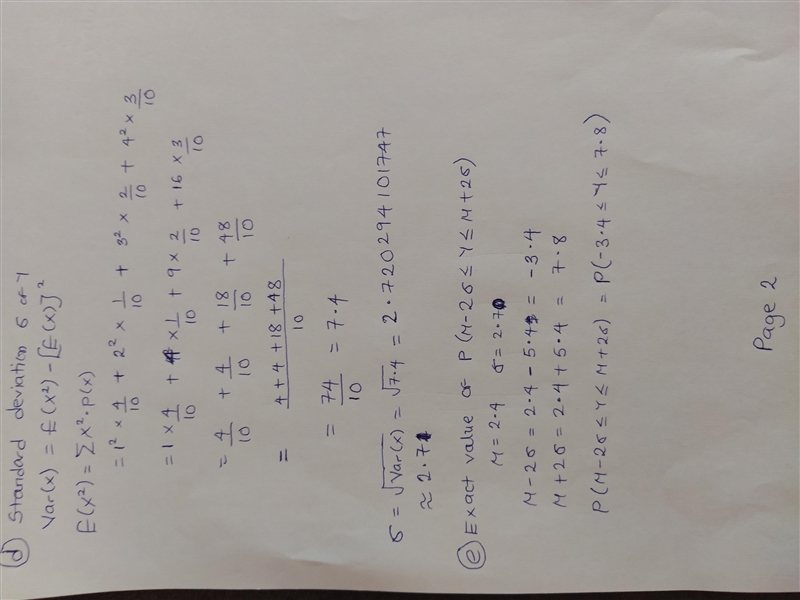 (d) Standard deviation σ of Y
Var(x) = E(x²) - [E(x)]²
E(x²) = Σx²·p(x)
= 1² × 4/10 + 2² × 1/10 + 3² × 2/10 + 4² × 3/10
= 1 × 4/10 + 4 × 1/10 + 9 × 2/10 + 16 × 3/10
= 4/10 + 4/10 + 18/10 + 48/10
= (4+4+18+48)/10
= 74/10 = 7.4
σ = √Var(x) = √7.4 = 2.720294101747
≈ 2.7
(e) Exact value of P(M-2σ ≤ Y ≤ M+2σ)
M = 2.4 σ = 2.70
M-2σ = 2.4 - 5.4 = -3.4
M+2σ = 2.4 + 5.4 = 7.8
P(M-2σ ≤ Y ≤ M+2σ) = P(-3.4 ≤ Y ≤ 7.8)
Page 2